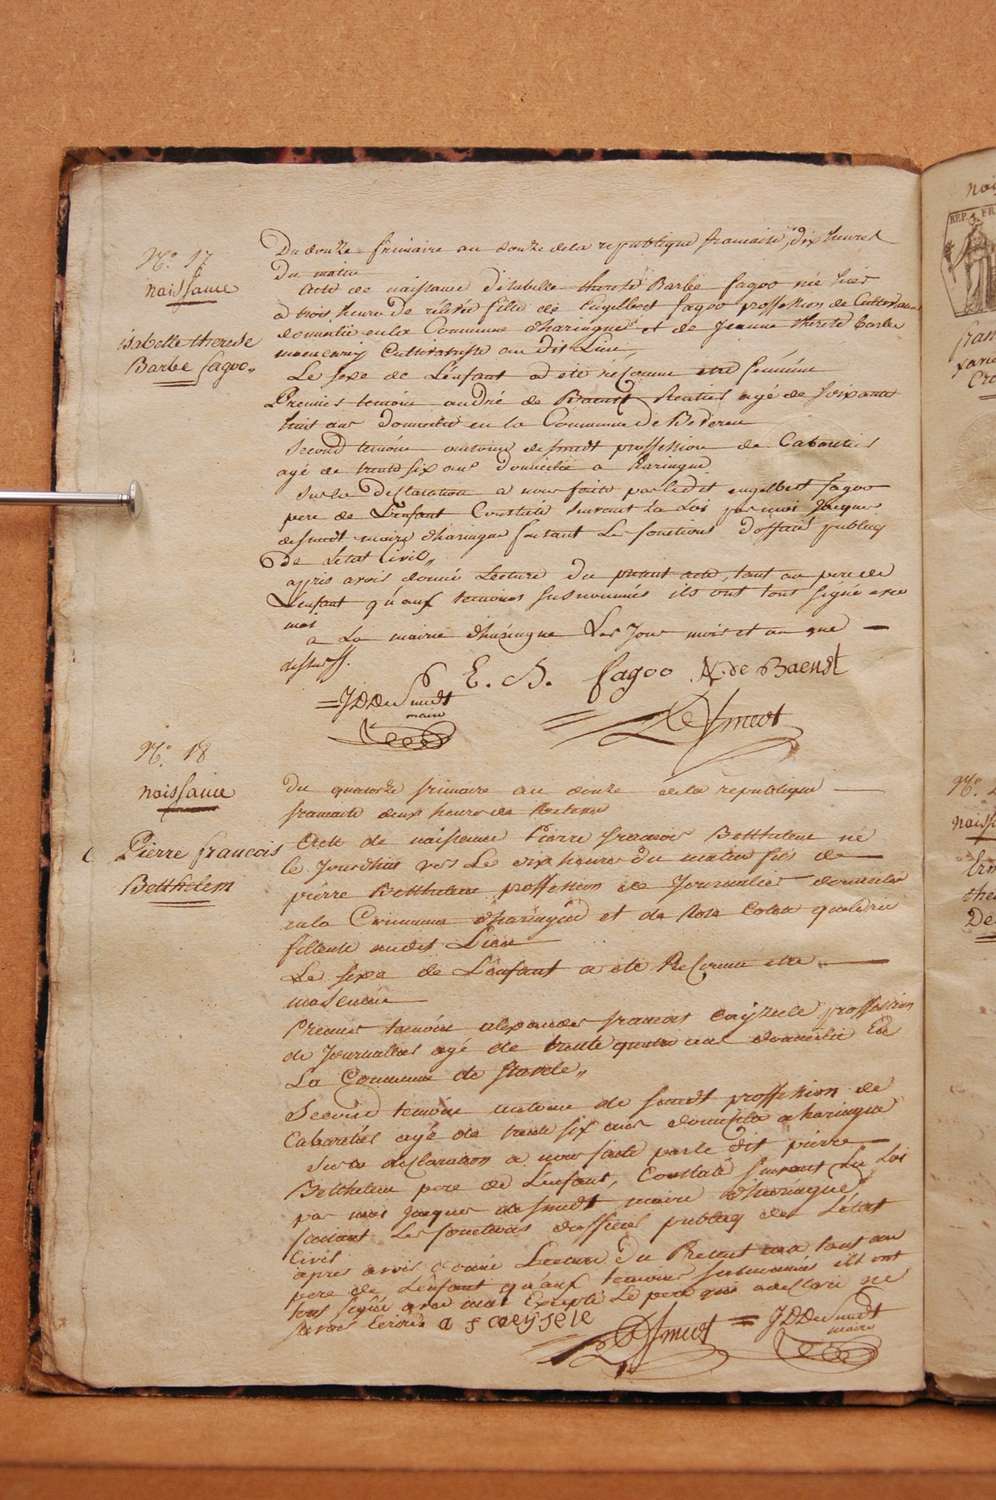 No. 17
naissance
isabelle therese
Barbe fagoo
Du douze frimaire an douze de la republique francaise, dix heures
Du matin
acte de naissance d'isabelle therese Barbe fagoo née hier
a trois heures de rélévée fille de Engelbert fagoo proffession de Cultivateur
domicilié en la Commune d'haringue et de Jeanne therese barbe
Cultivatrise au dit Lieu,
Le sexe de L'enfant a eté reconnu etre féminin
Premier temoin andré de Baenst Rentier agé de soixante
huit ans Domicilié en la Commune de
Second temoin antoine desmidt proffession de Cabaretier
agé de trente six ans domicilié a haringue
Sur la declaration a nous faite par ledit engelbert fagoo
pere de L'enfant Constaté suivant La Loi par moi Jacques
desmidt maire d'haringue faisant Les fonctions d'officier publicq
De L'etat Civil,,
appris avoir donné Lecture du present acte, tant au pere de
L'enfant qu'aux temoins susnommés ils ont tous signé avec
moi
a La mairie d'haringue Les Jour mois et an que
dessus.
E. B. fagoo A de Baenst
= JD De Smidt
maire
A DSmidt
No. 18
naissance
Pierre francois
Betthelem
du quatorze frimaire an douze de la republique
francaise deux heures de
acte de naissance Pierre francois Betthelem né
le Jourdhui vers Le dix heures du matin fils de
pierre Betthelem proffession de Journalier domicilié
en la Commune d'haringue et de Rose
fileuse audit Lieu
Le sexe de L'enfant a eté Reconnu etre
masculin
Premier temoin alexander francois Cayzeele proffession
de Journallier agé de trente quatre ans domicilié En
La Commune de Stavele,,
Second temoin antoine de smidt proffession de
Cabaretier agé de trente six ans domicilié a haringue
Sur la declaration a nous faite par le dit pierre
Betthelem pere de L'enfant, Constaté suivant La Loi
par moi Jacques de smidt maire d'haringue
faisant Les fonctions d'officier publicq de L'état
Civil
apres avoir donné Lecture du Present acte tant au
pere de L'enfant qu'aux temoins susnommés ils ont
tous signé avec moi Excepté Le pere qui a declaré ne
savoir Ecrire a f caeyseele
A DSmidt = JD De Smidt
maire